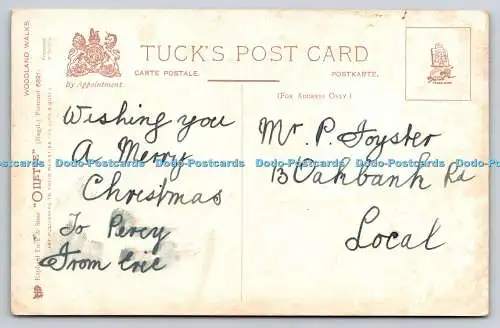 TUCK'S POST CARD
CARTE POSTALE. POSTKARTE.
By Appointment.
(FOR ADDRESS ONLY.)
WOODLAND WALKS.
Raphael Tuck & Sons' "OILETTE" (Regd.) Postcard
Wishing you
A Merry
Christmas
To Percy
From Eric
Mr. P. Foyster
13 Oakbank Rd
Local
Dodo-Postcards Dodo-Postcards Dodo-Postcards Dodo-Postcards Dodo-Postcards